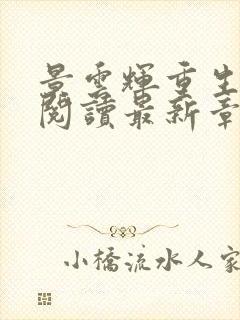 景雲輝重生
閱讀最新章
小橋流水人家